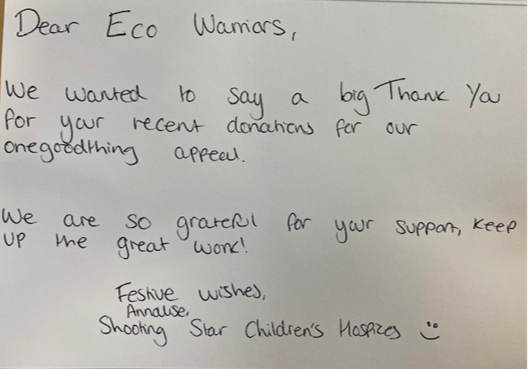 Dear Eco Warriors,
We wanted to say a big Thank You
for your recent donations for our
onegoodthing appeal.
We are so grateful for your support, keep
up the great work!
Festive wishes,
Annalise,
Shooting Star Children's Hospices :)